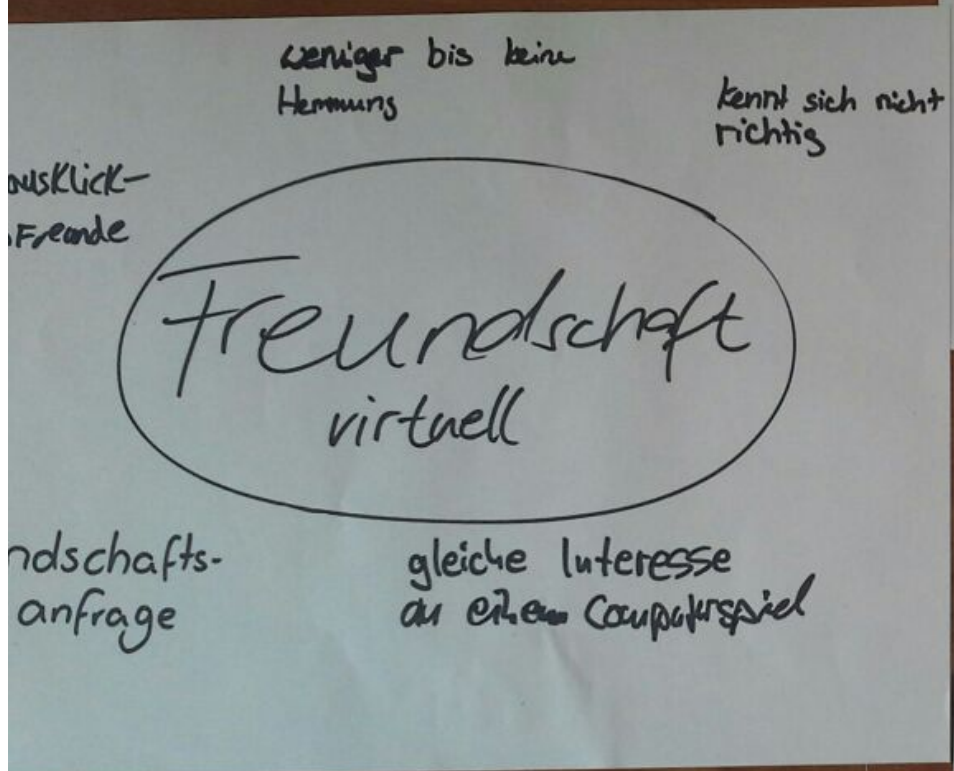 weniger bis keine
Hemmung
kennt sich nicht
richtig
ausklick-
Freunde
Freundschaft
virtuell
ndschafts-
anfrage
gleiche Interesse
an einem Computerspiel